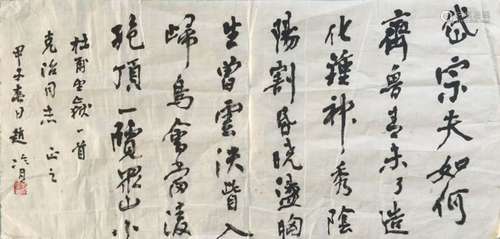 岱宗夫如何
齊魯青未了造
化鍾神秀陰
陽割昏曉盪胸
生曾雲決眥入
歸鳥會當凌
絶頂一覽眾山小
杜甫望嶽一首
克治同志 正之
甲子春日趙冷月